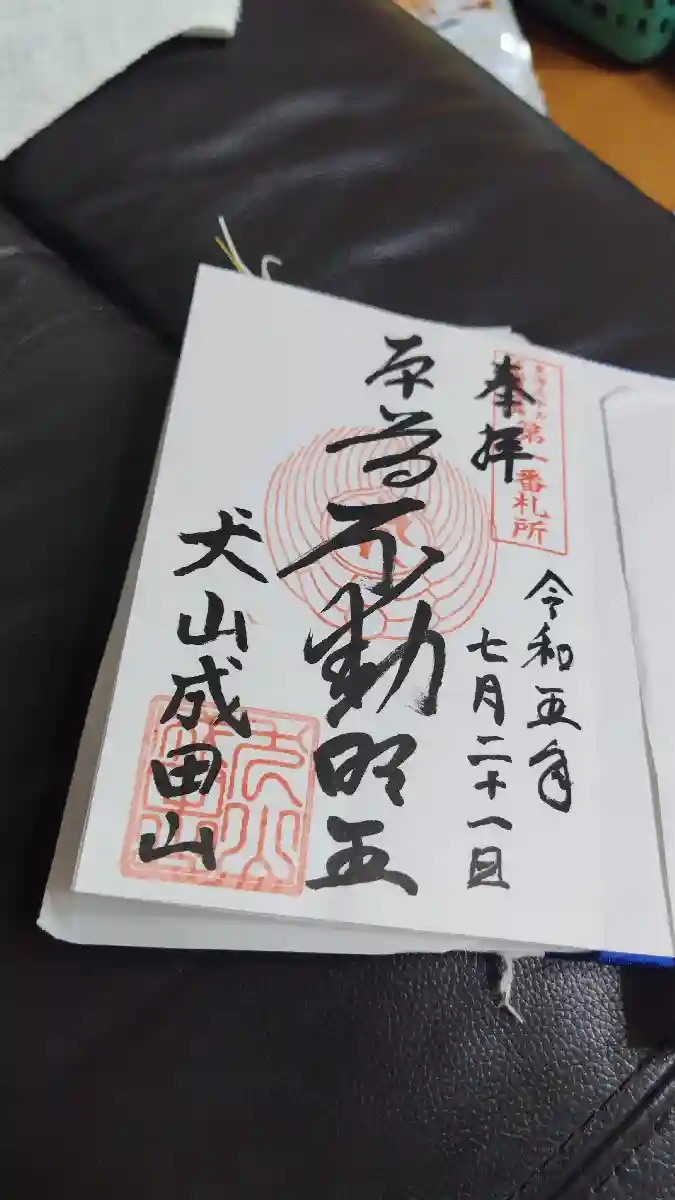 奉拝
第八番札所
令和五年
七月二十一日
本尊
不動明王
犬山成田山